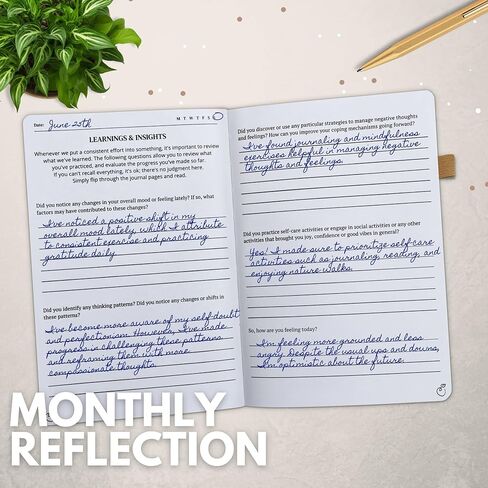 Date: June 25th
M T W T F S
LEARNINGS & INSIGHTS
Whenever we put a consistent effort into something, it's important to review
what we've learned. The following questions allow you to review what
you've practiced, and evaluate the progress you've made so far.
If you can't recall everything, it's ok; there's no judgment here.
Simply flip through the journal pages and read.
Did you notice any changes in your overall mood or feeling lately? If so, what
factors may have contributed to these changes?
I've noticed a positive shift in my
overall mood lately, which I attribute
to consistent exercise and practicing
gratitude daily.
Did you identify any thinking patterns? Did you notice any changes or shifts in
these patterns?
I've become more aware of my self-doubt
and perfectionism. However, I've made
progress in challenging these patterns
and reframing them with more
compassionate thoughts.
Did you discover or use any particular strategies to manage negative thoughts
and feelings? How can you improve your coping mechanisms going forward?
I've found journaling and mindfulness
exercises helpful in managing negative
thoughts and feelings.
Did you practice self-care activities or engage in social activities or any other
activities that brought you joy, confidence or good vibes in general?
Yes! I made sure to prioritize self-care
activities such as journaling, reading, and
enjoying nature walks.
So, how are you feeling today?
I'm feeling more grounded and less
angry. Despite the usual ups and downs,
I'm optimistic about the future.
MONTHLY
REFLECTION